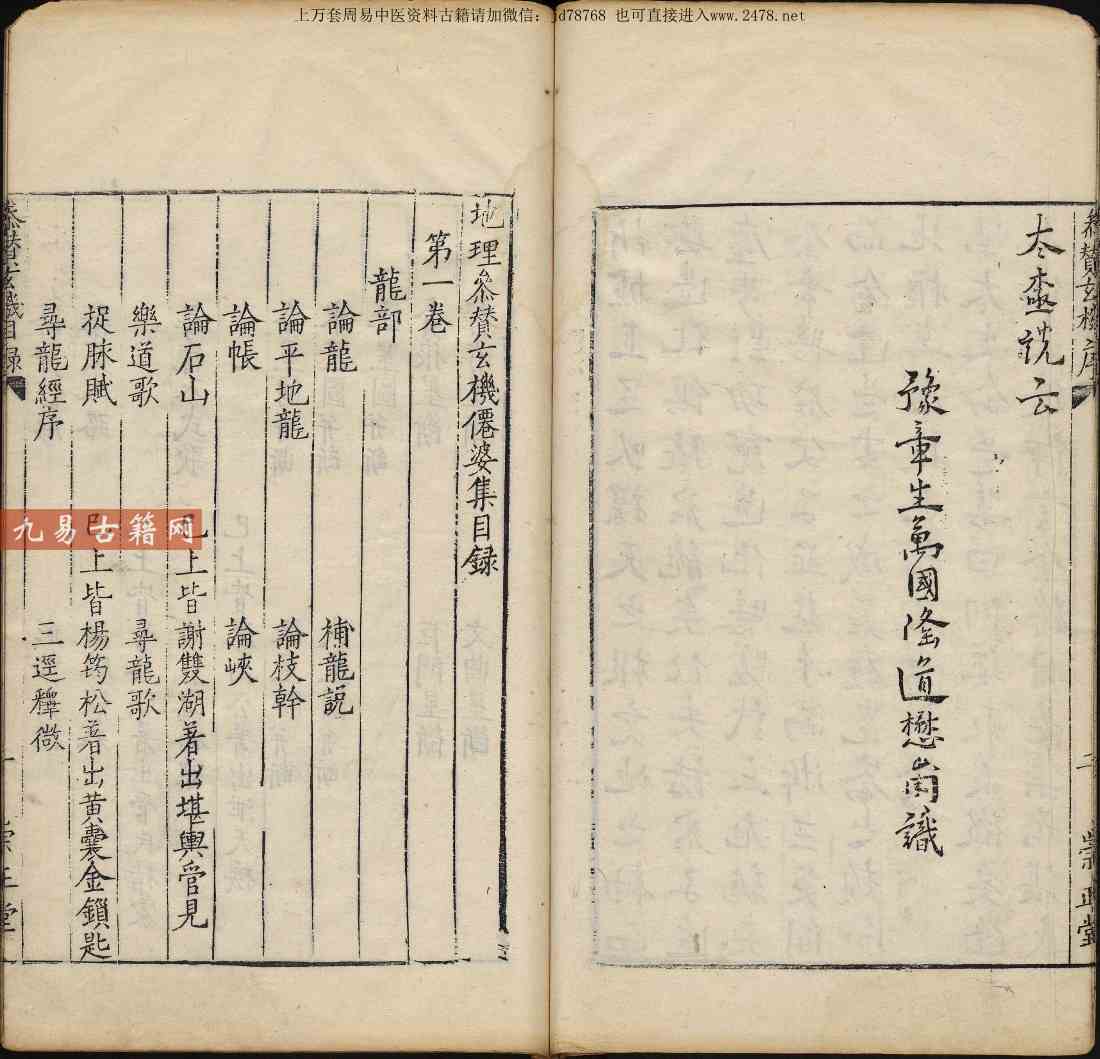 上万套周易中医资料古籍请加微信：jd78768 也可直接进入www.2478.net
叅賛玄機序
云
豫章生萬國隆道懋甫識
三
崇正堂
地理叅賛玄機僊婆集目録
第一卷
龍部
論龍 補龍説
論平地龍 論枝幹
論帳 論峽
論石山 已上皆謝雙湖著出堪輿管見
樂道歌 尋龍歌
捉脉賦 已上皆楊筠松著出黄囊金鎖匙
尋龍經序 三逕釋微
叅賛玄機目録
一
崇正堂
九易古籍网